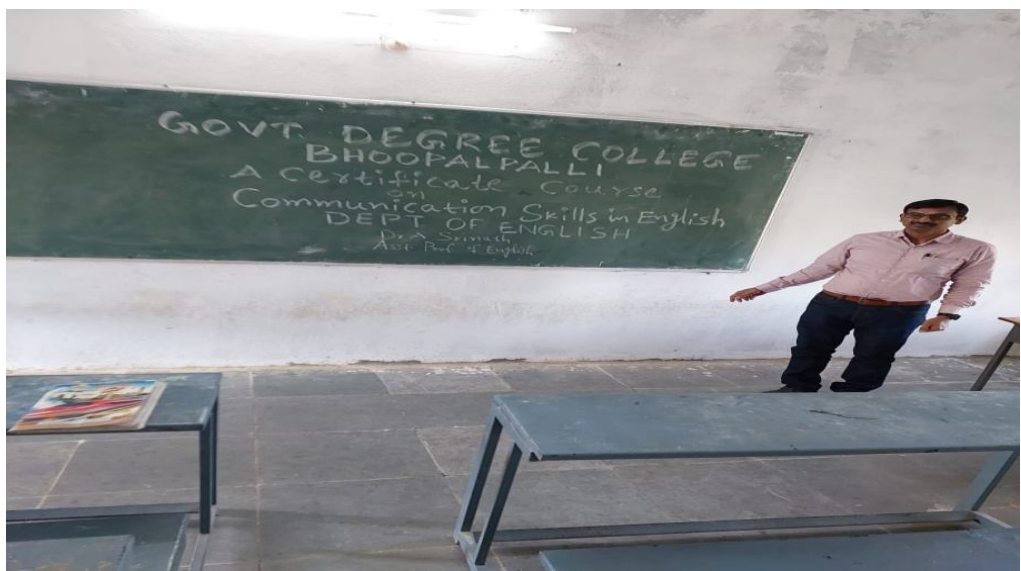 GOVT DEGREE COLLEGE
BHOOPALPALLI
A Certificate Course
on
Communication Skills in English
DEPT OF ENGLISH
Dr A Srinath
Asst Prof of English